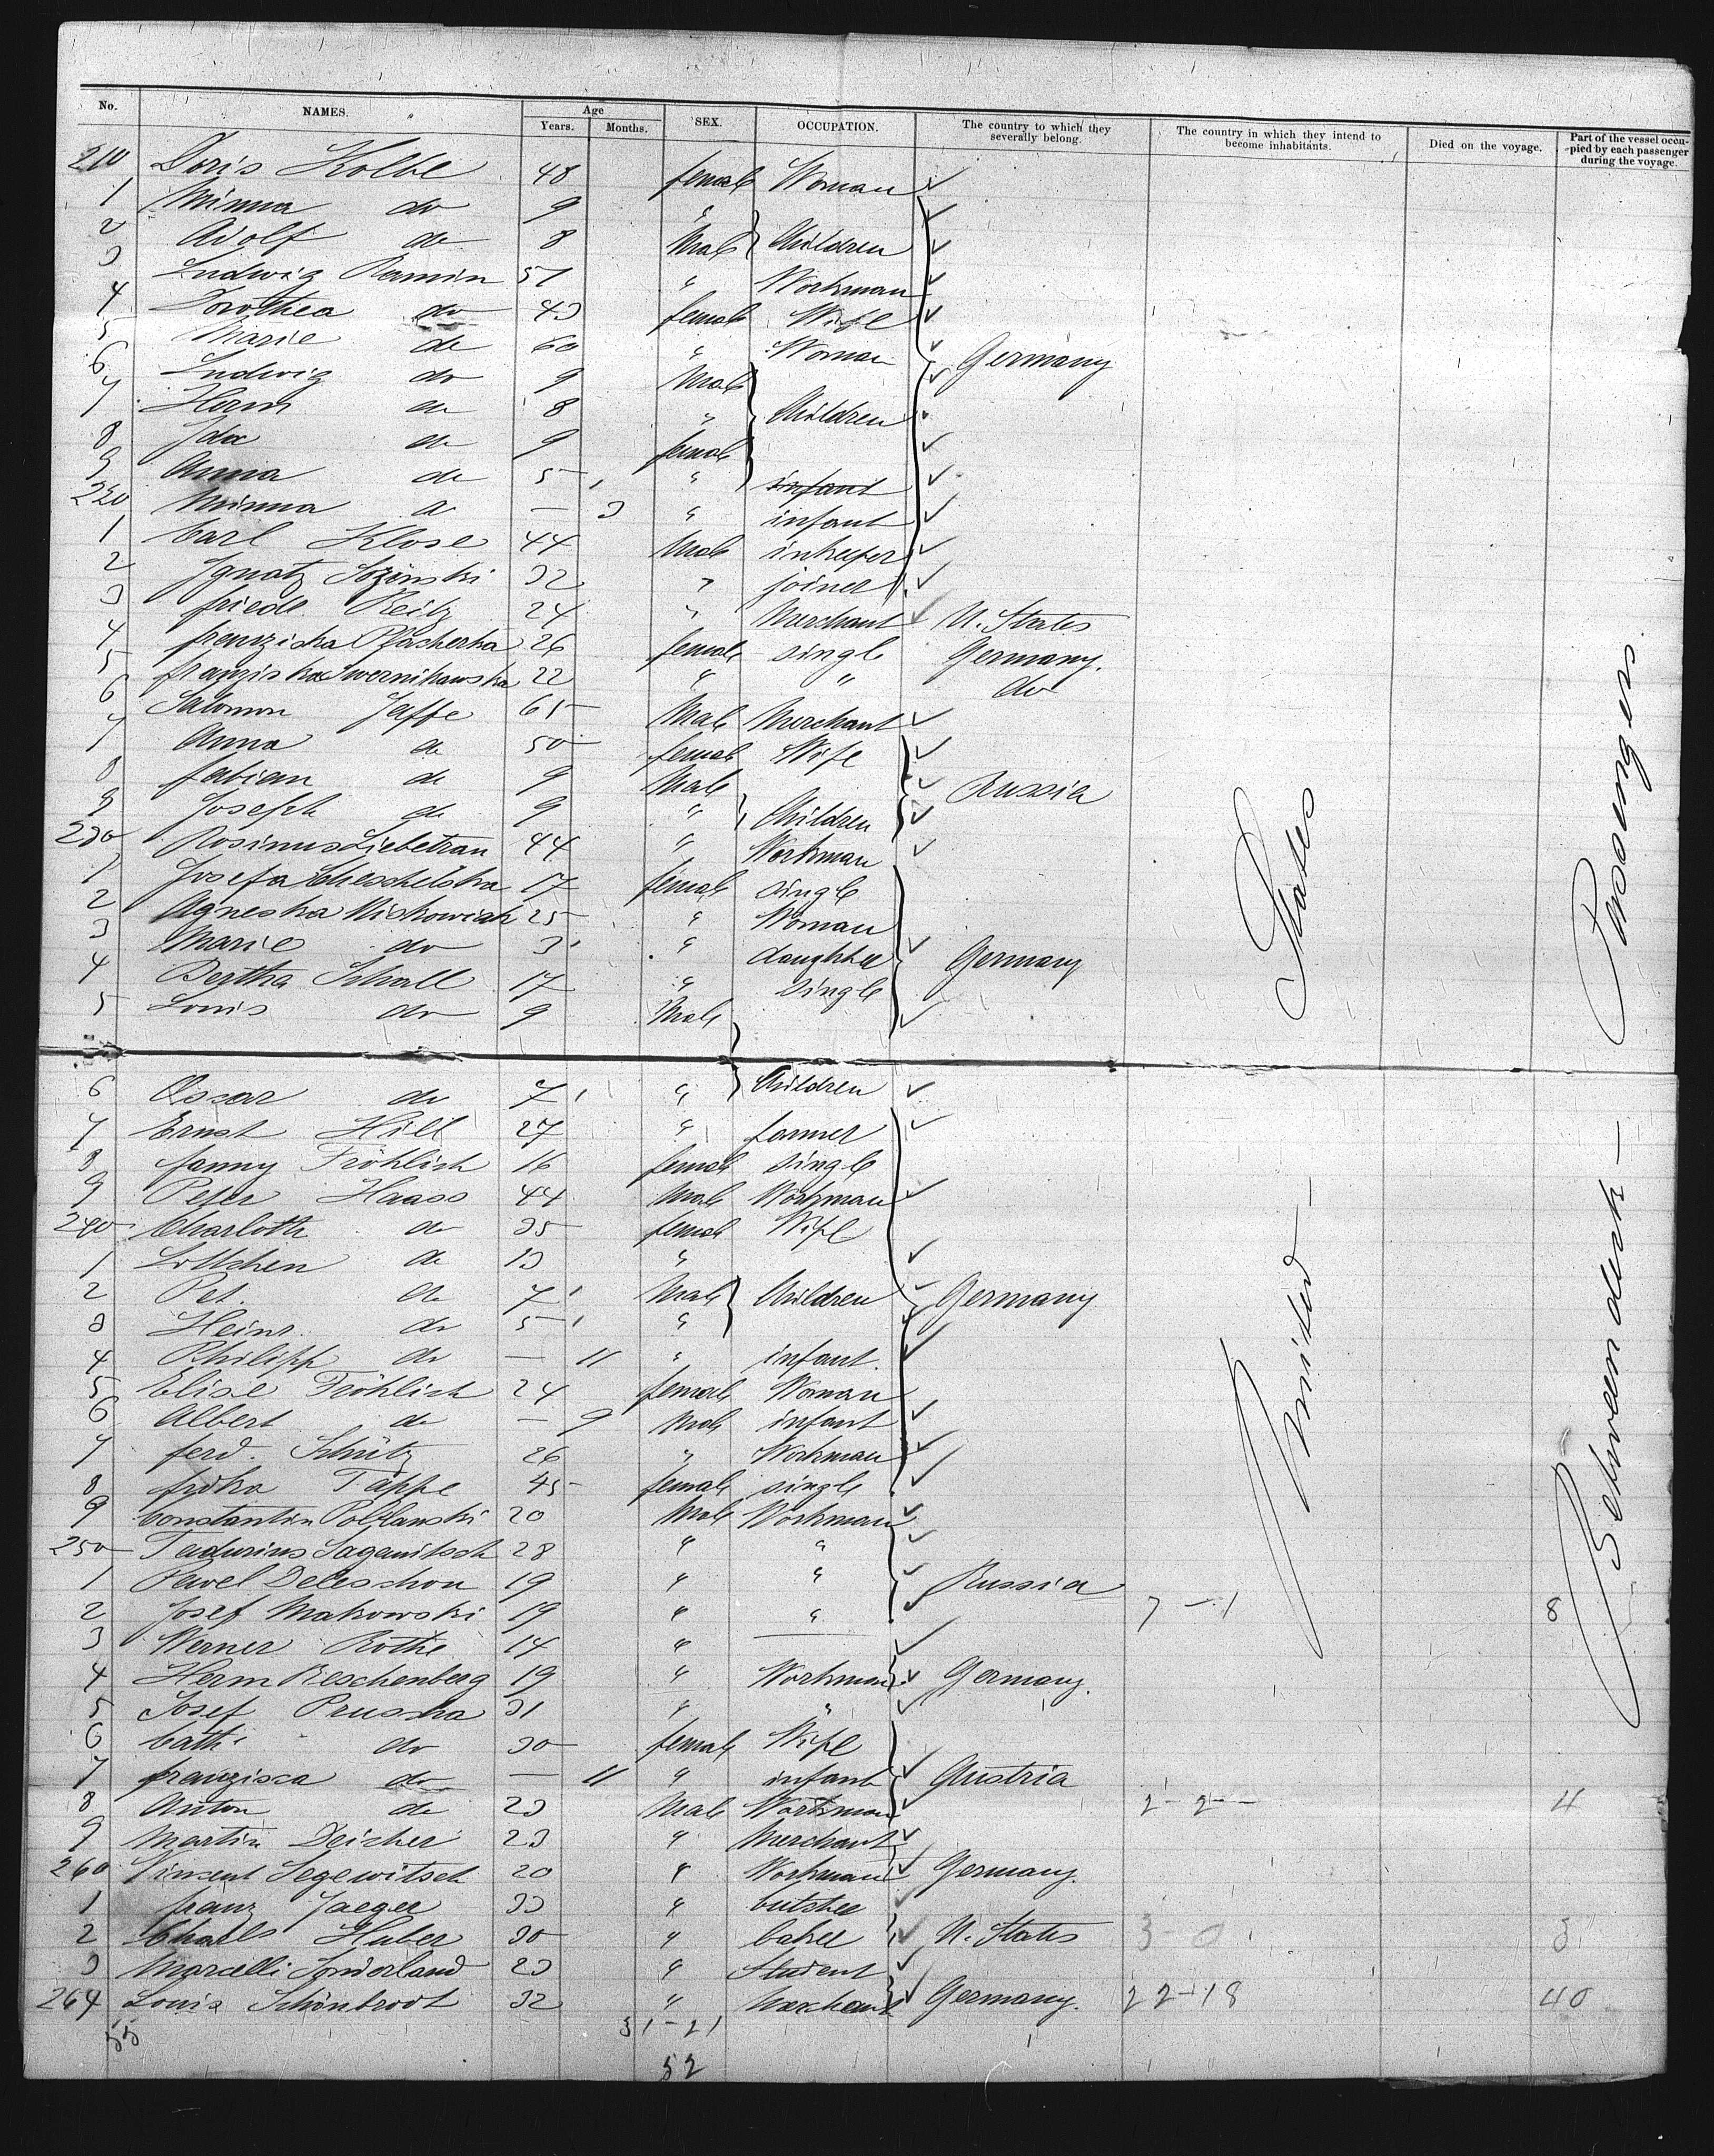 No. NAMES. Age Years. Months. SEX. OCCUPATION. The country to which they severally belong. The country in which they intend to become inhabitants. Died on the voyage. Part of the vessel occupied by each passenger during the voyage.
210 Doris Kolbe 48 female Woman
1 Minna do 9 "
2 Adolf do 8 Male Children
3 Ludwig Ramin 51 " Workman
4 Dorothea do 43 female Wife
5 Marie do 60 " Woman Germany
6 Ludwig do 9 Male
7 Herm do 8 " Children
8 Ida do 9 female
9 Anna do 5 " infant
220 Minna do — 3 " infant
1 Carl Klose 44 Male inkeeper
2 Ignatz 32 " joiner
3 friedr Reitz 24 " Merchant U. States
4 franziska 26 female single Germany.
5 franziska 22 " " do
6 Salomon Jaffe 65 Male Merchant
7 Anna do 50 female Wife
8 fabian do 9 Male Russia
9 Joseph do 9 " Children
230 Rosinus Liebetrau 44 " Workman
1 Josefa 17 female single
2 Agneska 25 " Woman
3 Marie do 3 " daughter Germany
4 Bertha Schall 17 " single
5 Louis do 9 Male
6 Oscar do 7 " Children
7 Ernst Hill 27 " farmer
8 fanny Fröhlich 16 female single
9 Peter Haass 44 Male Workman
240 Charlotte do 35 female Wife
1 Lottchen do 13 "
2 Pet. do 7 Male Children Germany
3 Heinr. do 5 "
4 Philipp do — 11 " infant.
5 Elise Fröhlich 24 female Woman
6 Albert do — 9 Male infant
7 ferd. Schütz 26 " Workman
8 Tappe 45 female single
9 Constantin 20 Male Workman
250 Saganitsch 28 " "
1 Pavel Deleschon 19 " " Russia
2 Josef Makowski 19 " " 7-1 8
3 Werner Rothe 14 " —
4 Herm Reschenberg 19 " Workman Germany.
5 Josef Pruscha 31 " "
6 Cath do 30 female Wife
7 franzisca do — 11 " infant Austria
8 Anton do 23 Male Workman 2-2 4
9 Martin Deicher 23 " Merchant
260 Vincent Segewitsch 20 " Workman Germany.
1 franz Jaeger 33 " butcher
2 Charles Huber 30 " baker U. States 3-0 3
3 Marcelli Sonderland 23 " Student
264 Louis Schönbrodt 32 " Merchant Germany. 22-18 40
55 31-21
52
United States
Between deck — Passengers